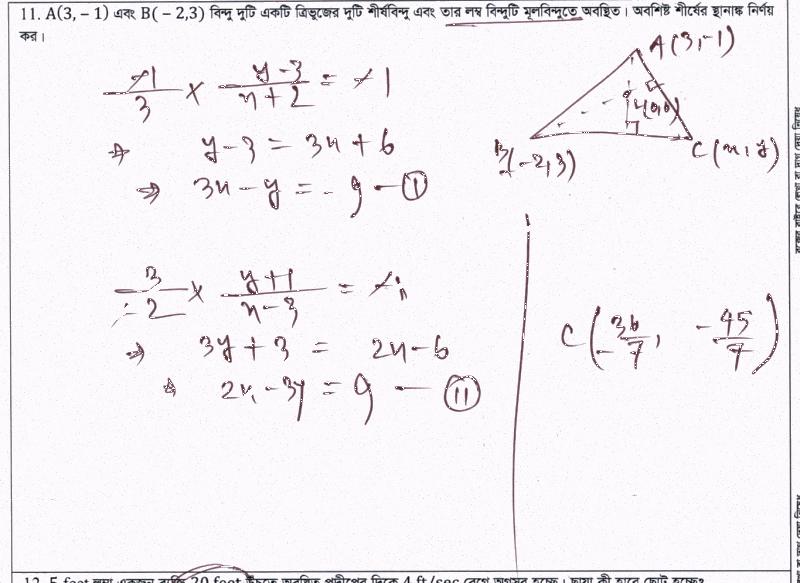 11. A(3, – 1) এবং B( – 2,3) বিন্দু দুটি একটি ত্রিভুজের দুটি শীর্ষবিন্দু এবং তার লম্ব বিন্দুটি মূলবিন্দুতে অবস্থিত। অবশিষ্ট শীর্ষের স্থানাঙ্ক নির্ণয়
কর।
A(3,-1)
-1/3 × y-3/x+2 = -1
(0,0)
⇒ y-3 = 3x+6
B(-2,3)
C(x,y)
⇒ 3x-y = -9 — (I)
3/-2 × y+1/x-3 = -1
⇒ 3y+3 = 2x-6
C(-36/7, -45/7)
⇒ 2x-3y = 9 — (II)
12. 5 feet লম্বা একজন ব্যক্তি 20 feet উঁচুতে অবস্থিত প্রদীপের দিকে 4 ft/sec বেগে অগ্রসর হচ্ছে। ছায়া কী হারে ছোট হচ্ছে?